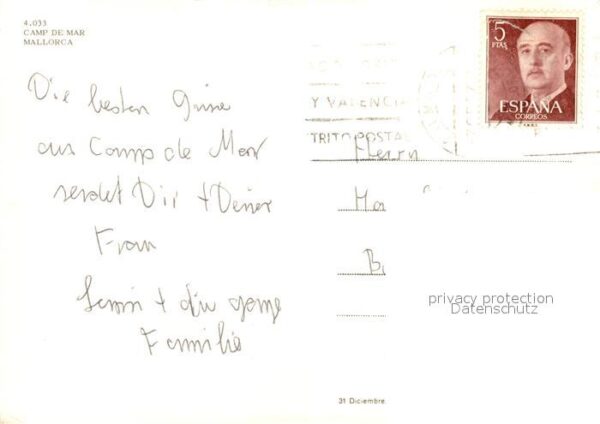 4.033
CAMP DE MAR
MALLORCA
Die besten Grüsse
aus Camp de Mar
sendet Dir + Deiner
Frau
+ die ganze
Familie
5
PTAS
ESPAÑA
CORREOS
Y VALENCIA
TRITO POSTAL
Herrn
Ha
B
privacy protection
Datenschutz
31 Diciembre.